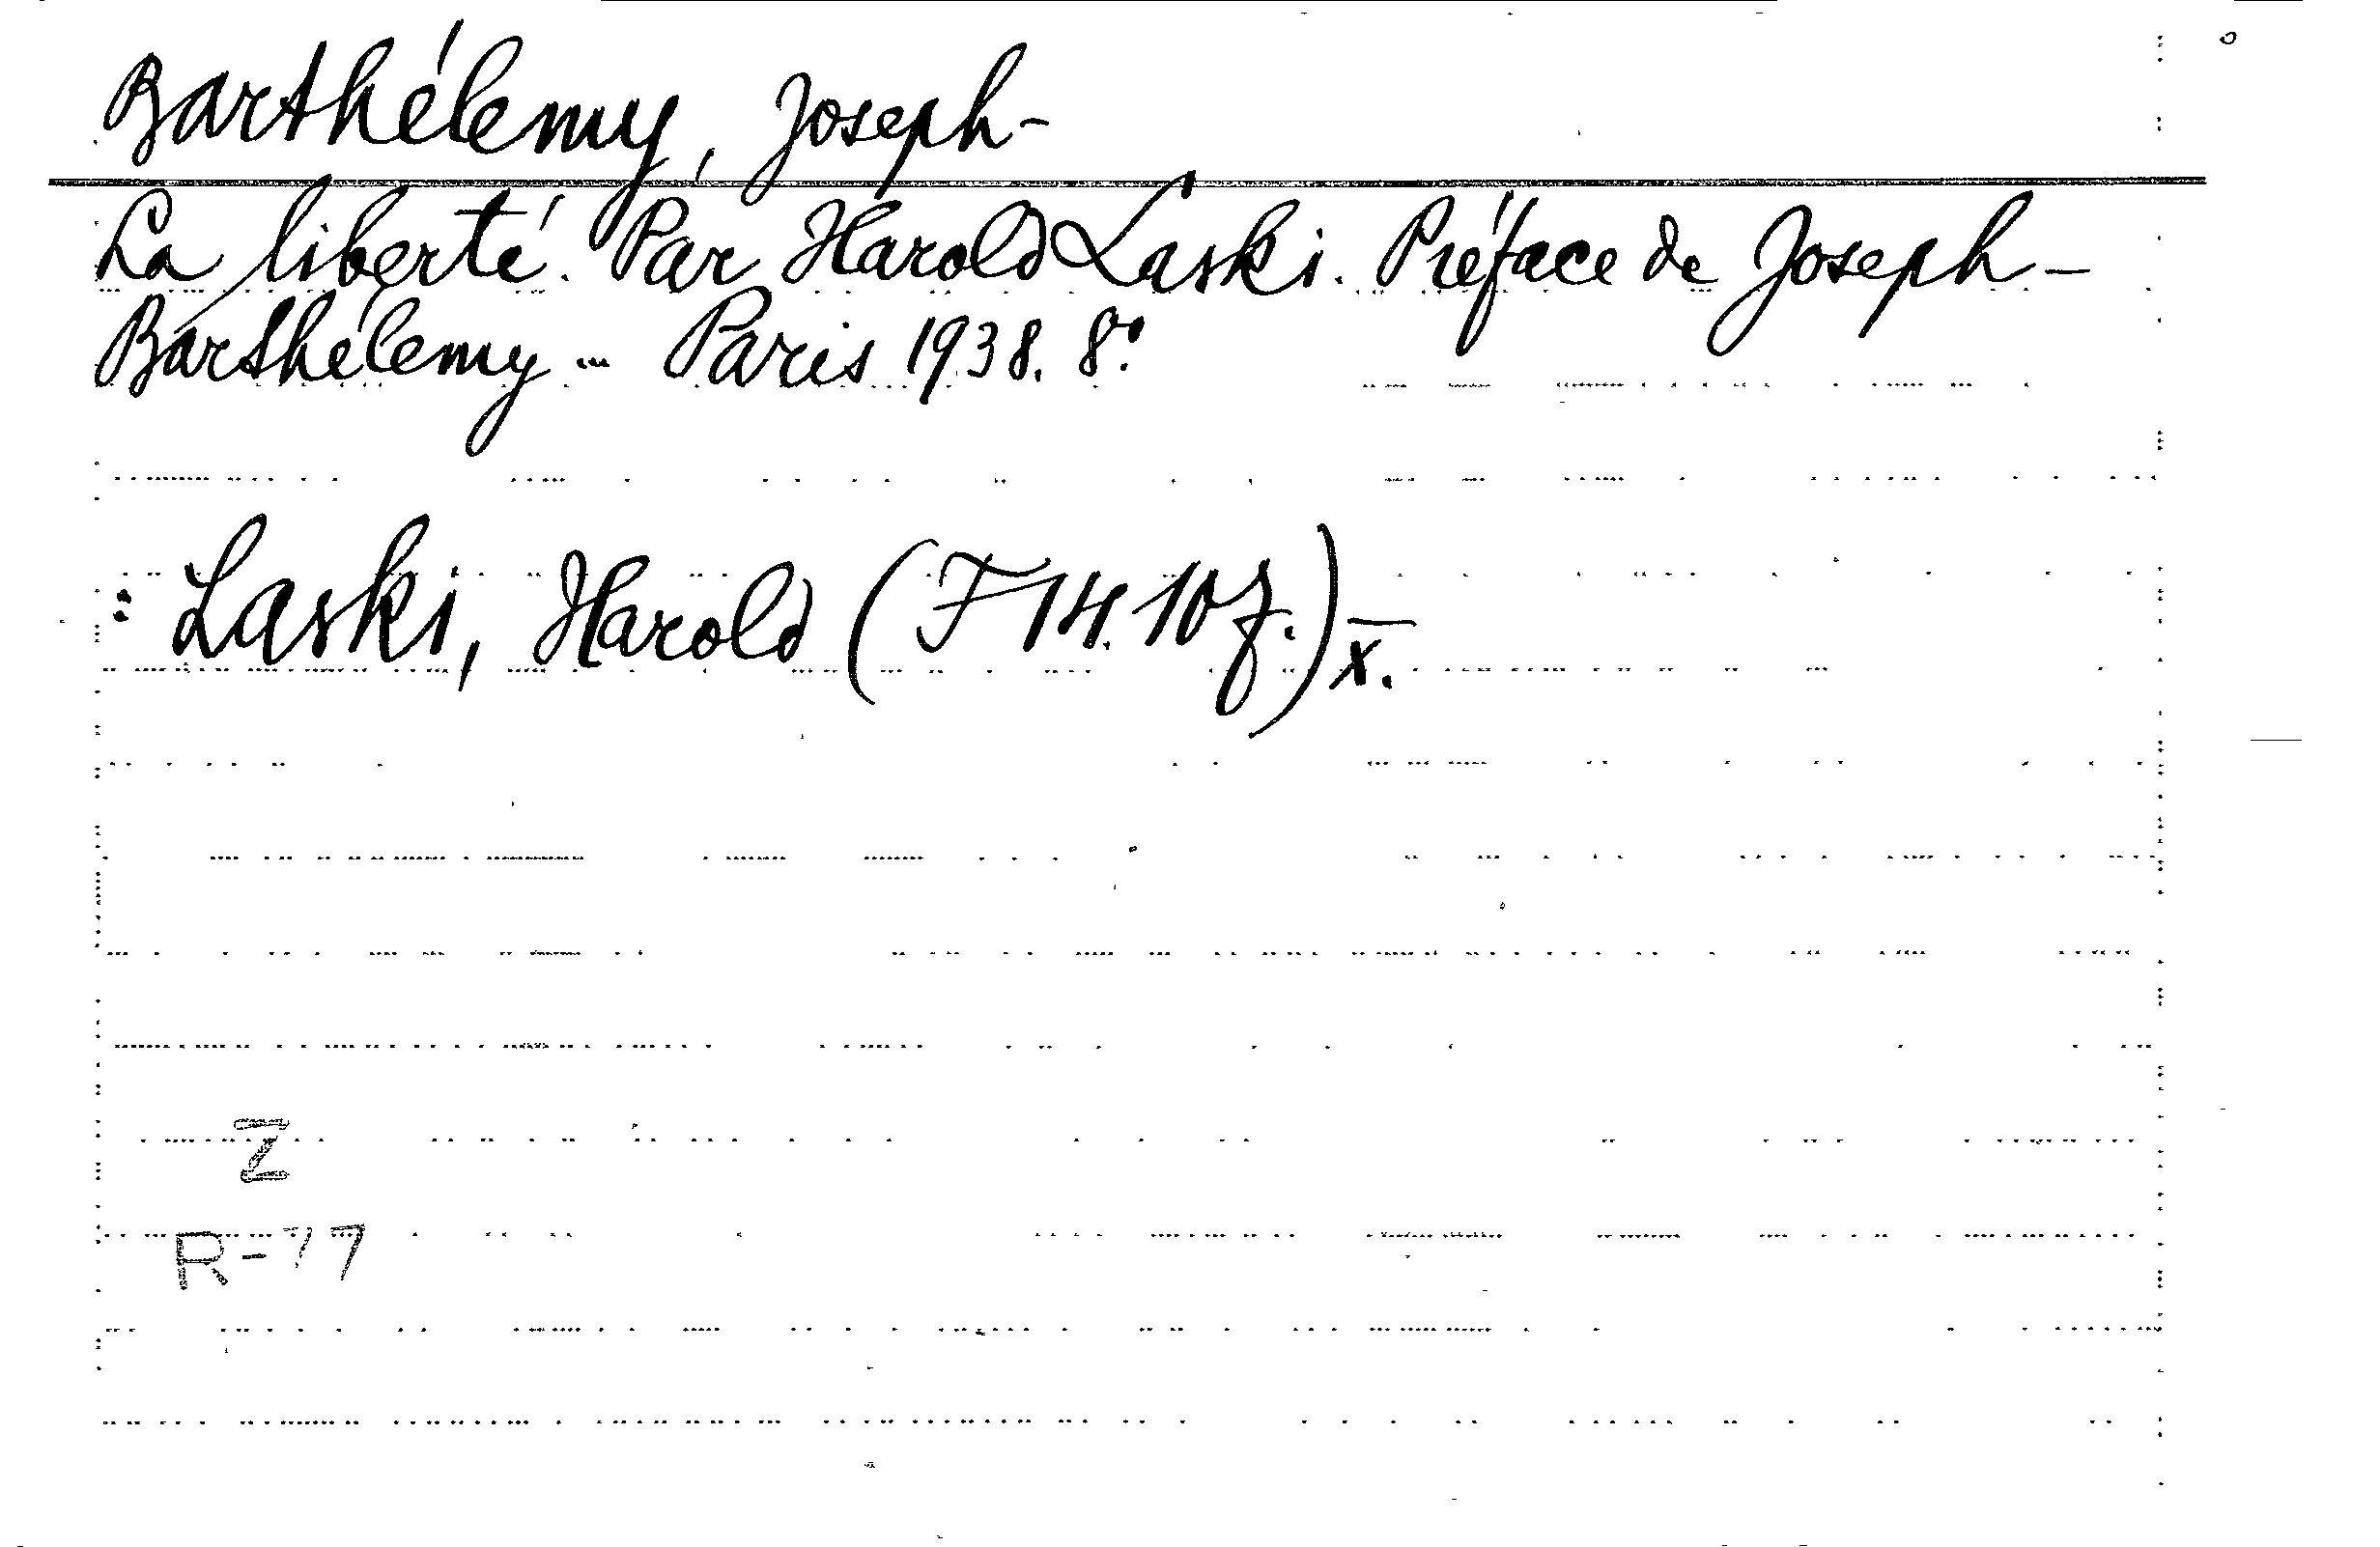 Barthélemy, Joseph-
La liberté. Par Harold Laski. Préface de Joseph-
Barthélemy ... Paris 1938. 8°.
: Laski, Harold (F 14. 10 f.) x.
Z
R-77